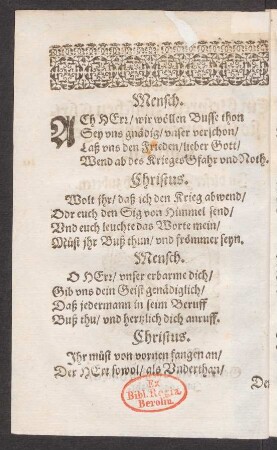 Mensch.
ACh HErr/ wir wöllen Busse thon
Sey vns gnädig/ vnser verschon/
Laß vns den Frieden/ lieber Gott/
Wend ab des Krieges Gfahr vnd Noth.
Christus.
Wolt jhr/ daß ich den Krieg abwend/
Vnd euch leuchte das Worte mein/
Müst jhr Buß thun/ vnd frömmer seyn.
Mensch.
O HErr/ vnser erbarme dich/
Gib vns dein Geist genädiglich/
Daß jedermann in seim Beruff
Buß thu/ vnd hertzlich dich anruff.
Christus.
Jhr müst von vornen fangen an/
Der HErr sowol/ als Vnderthan/
Ex
Bibl. Regia
Berolin.
De